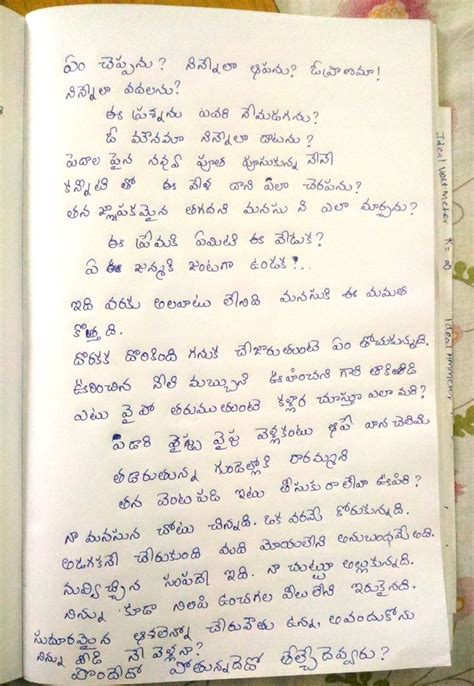 ఏం చెప్పను? నిన్నెలా ఆపను? ఓ ప్రాణమా!
నిన్నెలా వదలను?
ఈ ప్రశ్నను ఎవరి నేమడగను?
ఓ మౌనమా నిన్నెలా దాటను?
పెదాల పైన నవ్వు పూత పూసుకున్న నేనే
కన్నీటి తో ఈ వేళ దాని ఎలా చెరపను?
తన జ్ఞాపకమైన తగదని మనసు ని ఎలా మార్చను?
ఈ ప్రేమకి ఏమిటి ఈ వేడుక?
ఏ జన్మకి జంటగా ఉండక?...
ఇది వరకు అలవాటు లేనిది మనసుకి ఈ మమత
కొత్తది.
దొరకక దొరికింది గనుక చేజారుతుంటె ఏం తోచకున్నది.
ఊరించిన నీలి మబ్బుని ఊహించని గాలి తాకితిడి
ఎటు వైపో తరుముతుంటె కళ్లార చూస్తూ ఎలా మరి?
పెడారి వైపు వెళ్లకంటు ఆపే వాన చెలిమి
తడారుతున్న గుండెల్లోకి రారమ్మని
తన వెంట పడి ఇటు తీసుకు రాలేవా ఊపిరి?
నా మనసున చోటు చిన్నది. ఒక వరమే కోరుకున్నది.
అడగకనే చేరుకుంది మది మోయలేని అనుబంధమే అది.
నువ్విచ్చిన సంపదే ఇది. నా చుట్టూ అల్లుకున్నది.
నిన్ను కూడా నిలిపి ఉంచగల వీలు లేని ఇరుకైనది.
సుదూరమైన ఆశలెన్నో చేరువౌతు ఉన్న, అవందుకోను
నిన్ను వీడి నే వెళ్లనా?
పొందేదో పోతున్నదేదో తేల్చేదెవ్వరు?
Ideal Voltmeter R = ∞
Ideal Ammeter